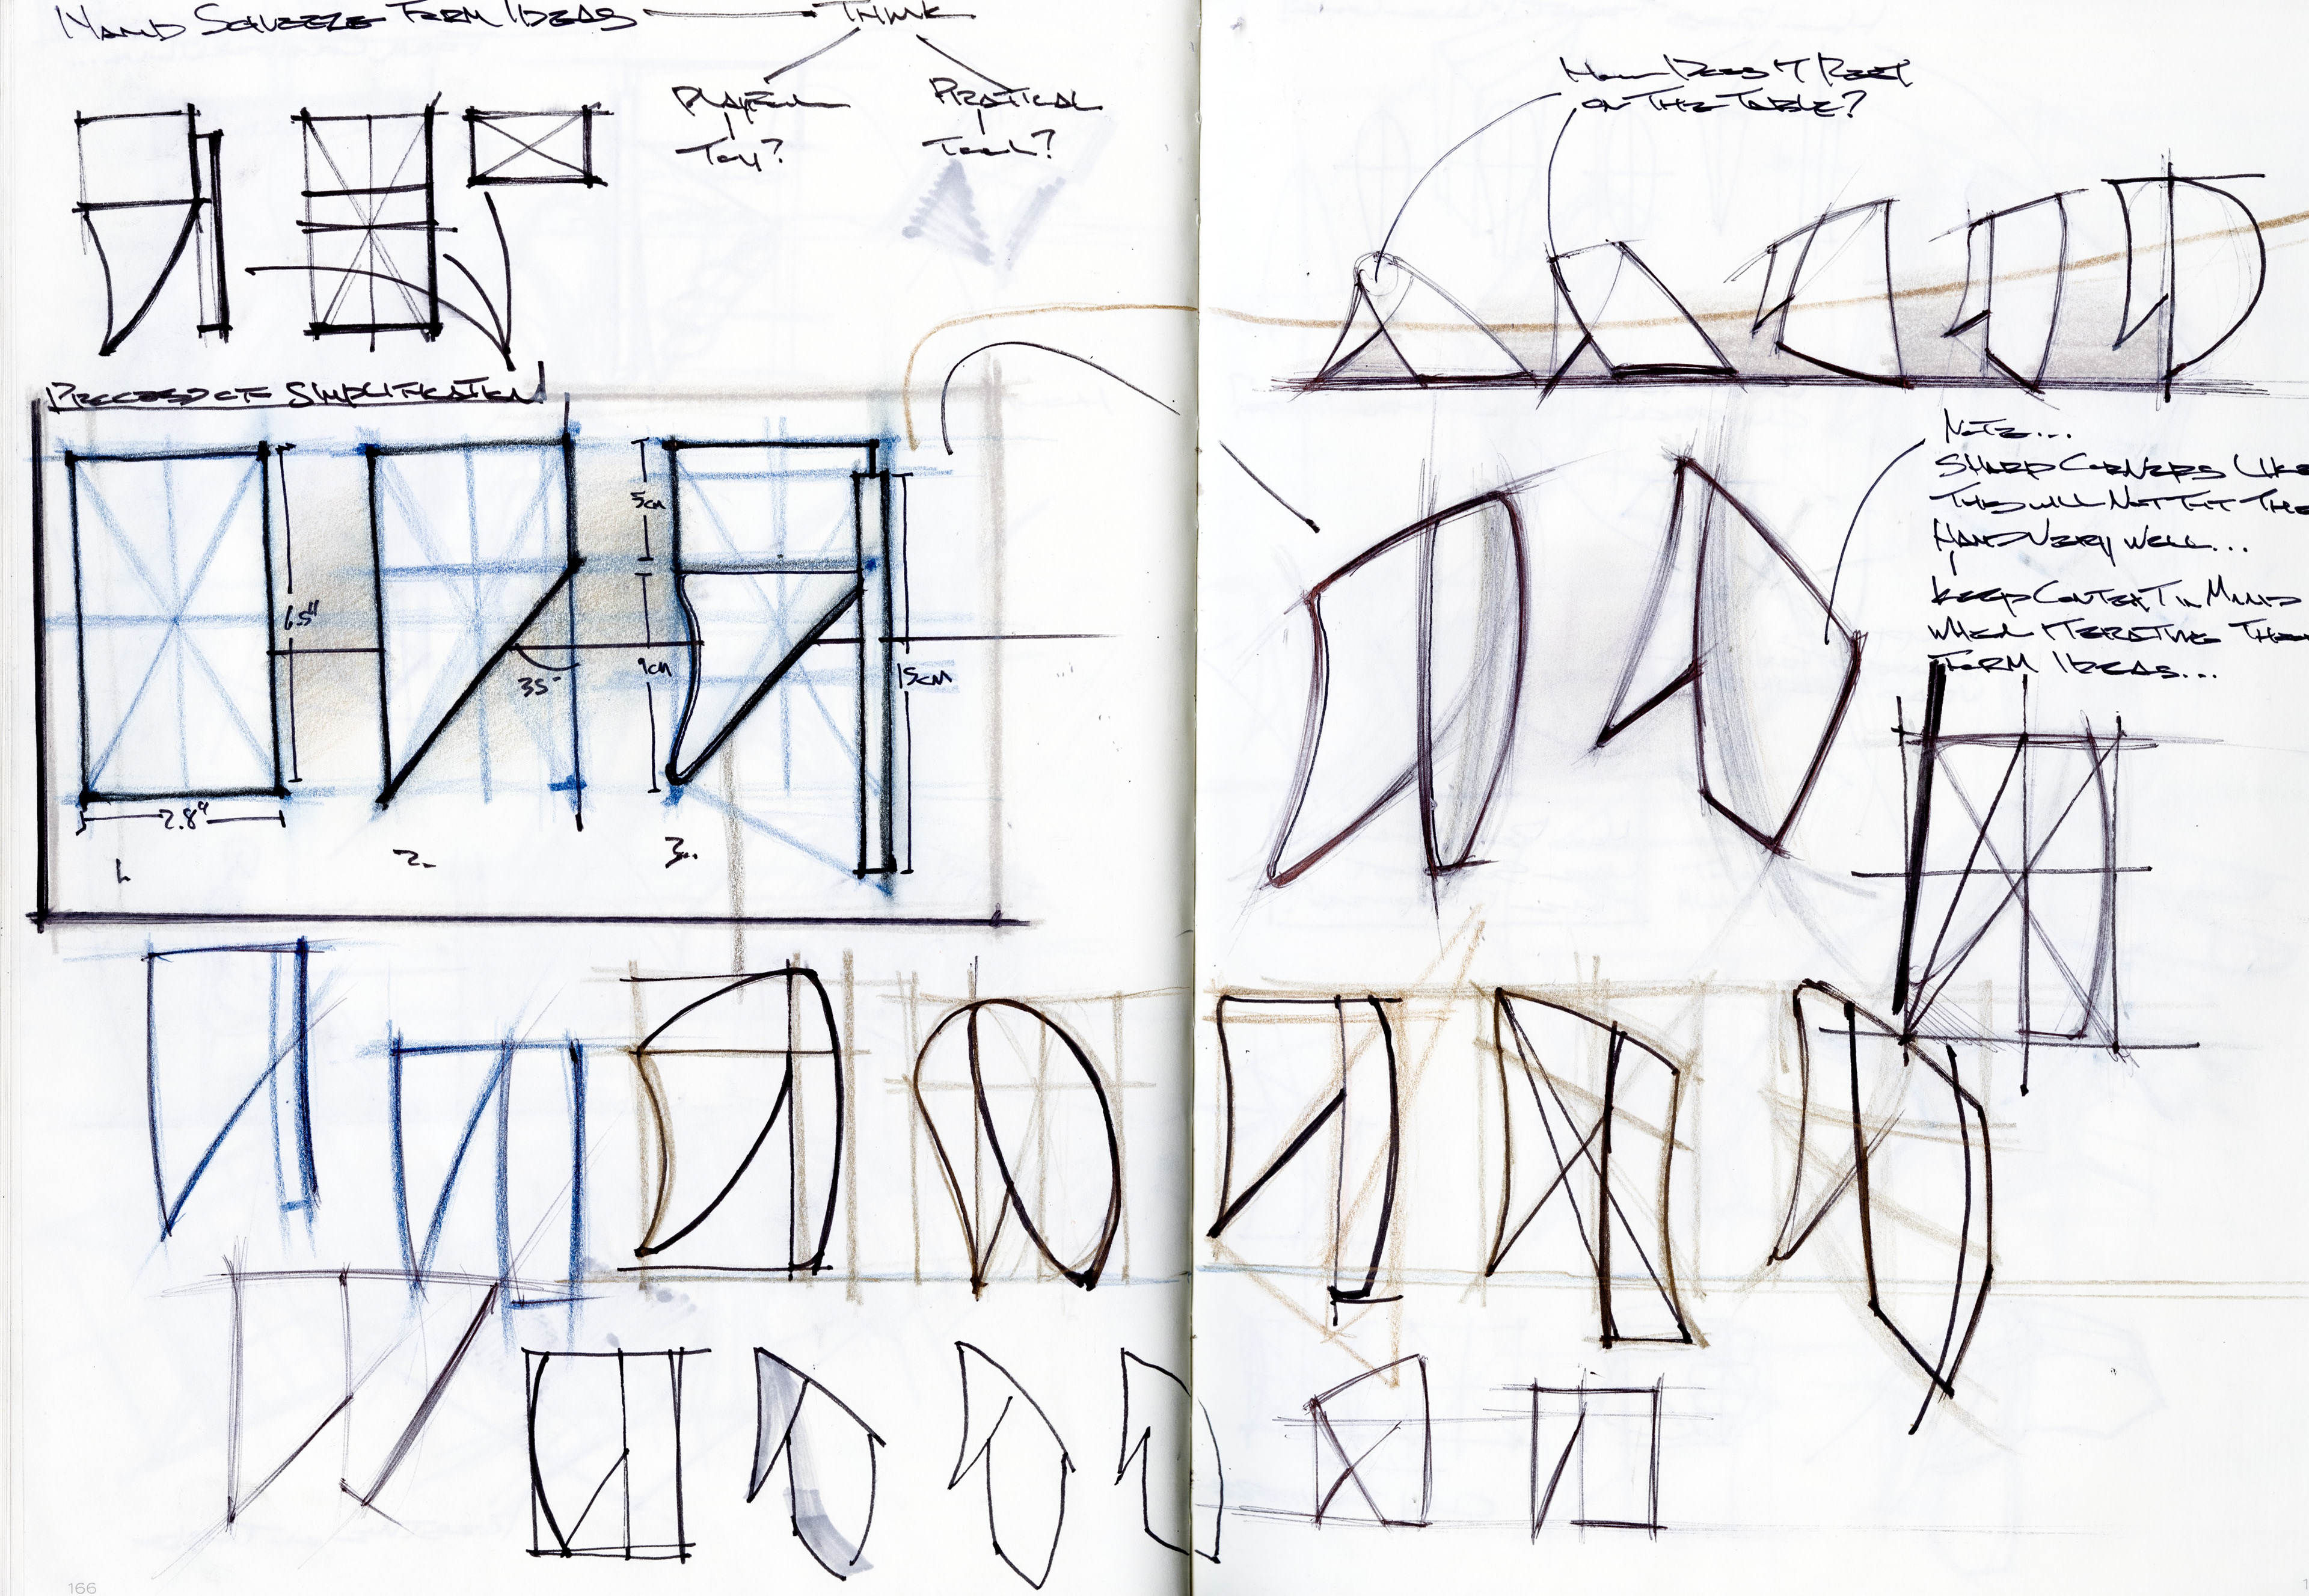 HAND SQUEEZE FORM IDEAS → THINK
PLAYFUL
TOY?
PRATICAL
TOOL?
PROCESS OF SIMPLIFICATION
6.5"
2.8"
1.
35°
2.
5cm
9cm
15cm
3.
166
HOW DOES IT REST
ON THE TABLE?
NOTE...
SHARP CORNERS LIKE
THIS WILL NOT FIT THE
HAND VERY WELL...
KEEP CONTEXT IN MIND
WHEN ITERATING THESE
FORM IDEAS...
1